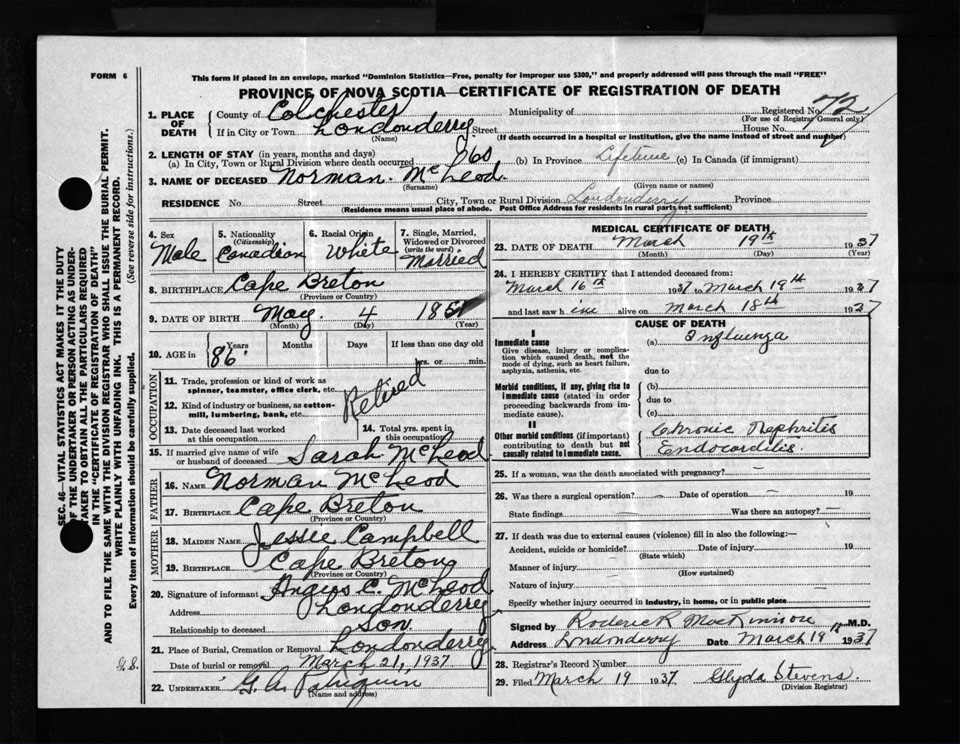 FORM 6
This form if placed in an envelope, marked "Dominion Statistics—Free, penalty for improper use $300," and properly addressed will pass through the mail "FREE"
PROVINCE OF NOVA SCOTIA—CERTIFICATE OF REGISTRATION OF DEATH
1. PLACE OF DEATH
County of Colchester Municipality of Registered No. 72
(For use of Registrar General only)
If in City or Town Londonderry Street House No.
(Name) (If death occurred in a hospital or institution, give the name instead of street and number)
2. LENGTH OF STAY (in years, months and days)
(a) In City, Town or Rural Division where death occurred 60 (b) In Province Lifetime (c) In Canada (if immigrant)
3. NAME OF DECEASED Norman McLeod
(Surname) (Given name or names)
RESIDENCE No. Street City, Town or Rural Division Londonderry Province
(Residence means usual place of abode. Post Office Address for residents in rural parts not sufficient)
4. Sex Male
5. Nationality (Citizenship) Canadian
6. Racial Origin White
7. Single, Married, Widowed or Divorced (write the word) Married
8. BIRTHPLACE Cape Breton
(Province or Country)
9. DATE OF BIRTH May 4 185
(Month) (Day) (Year)
10. AGE in Years Months Days If less than one day old
86 hrs. or min.
OCCUPATION
11. Trade, profession or kind of work as spinner, teamster, office clerk, etc.
Retired
12. Kind of industry or business, as cotton-mill, lumbering, bank, etc.
13. Date deceased last worked at this occupation
14. Total yrs. spent in this occupation
15. If married give name of wife or husband of deceased Sarah McLeod
FATHER
16. NAME Norman McLeod
17. BIRTHPLACE Cape Breton
(Province or Country)
MOTHER
18. MAIDEN NAME Jessie Campbell
19. BIRTHPLACE Cape Breton
(Province or Country)
20. Signature of informant Angus C. McLeod
Address Londonderry
Relationship to deceased Son.
21. Place of Burial, Cremation or Removal Londonderry
Date of burial or removal March 21, 1937
22. UNDERTAKER G. A.
(Name and address)
MEDICAL CERTIFICATE OF DEATH
23. DATE OF DEATH March 19th 1937
(Month) (Day) (Year)
24. I HEREBY CERTIFY that I attended deceased from:
March 16th 1937 to March 19th 1937
and last saw him alive on March 18th 1937
CAUSE OF DEATH
I
Immediate cause
Give disease, injury or complication which caused death, not the mode of dying, such as heart failure, asphyxia, asthenia, etc.
(a) Influenza
due to
Morbid conditions, if any, giving rise to immediate cause (stated in order proceeding backwards from immediate cause).
(b)
due to
(c)
II
Other morbid conditions (if important) contributing to death but not causally related to immediate cause.
Chronic Nephritis
Endocarditis
25. If a woman, was the death associated with pregnancy?
26. Was there a surgical operation? Date of operation 19
State findings Was there an autopsy?
27. If death was due to external causes (violence) fill in also the following:—
Accident, suicide or homicide? Date of injury 19
(State which)
Manner of injury
(How sustained)
Nature of injury
Specify whether injury occurred in industry, in home, or in public place
Signed by Roderick MacKinnon M.D.
Address Londonderry Date March 19 1937
28. Registrar's Record Number
29. Filed March 19 1937 Glyda Stevens.
(Division Registrar)
SEC. 46—VITAL STATISTICS ACT MAKES IT THE DUTY
OF THE UNDERTAKER OR PERSON ACTING AS UNDER-
TAKER TO OBTAIN ALL THE PARTICULARS REQUIRED
IN THE "CERTIFICATE OF REGISTRATION OF DEATH"
AND TO FILE THE SAME WITH THE DIVISION REGISTRAR WHO SHALL ISSUE THE BURIAL PERMIT.
WRITE PLAINLY WITH UNFADING INK. THIS IS A PERMANENT RECORD.
Every item of information should be carefully supplied. (See reverse side for instructions.)